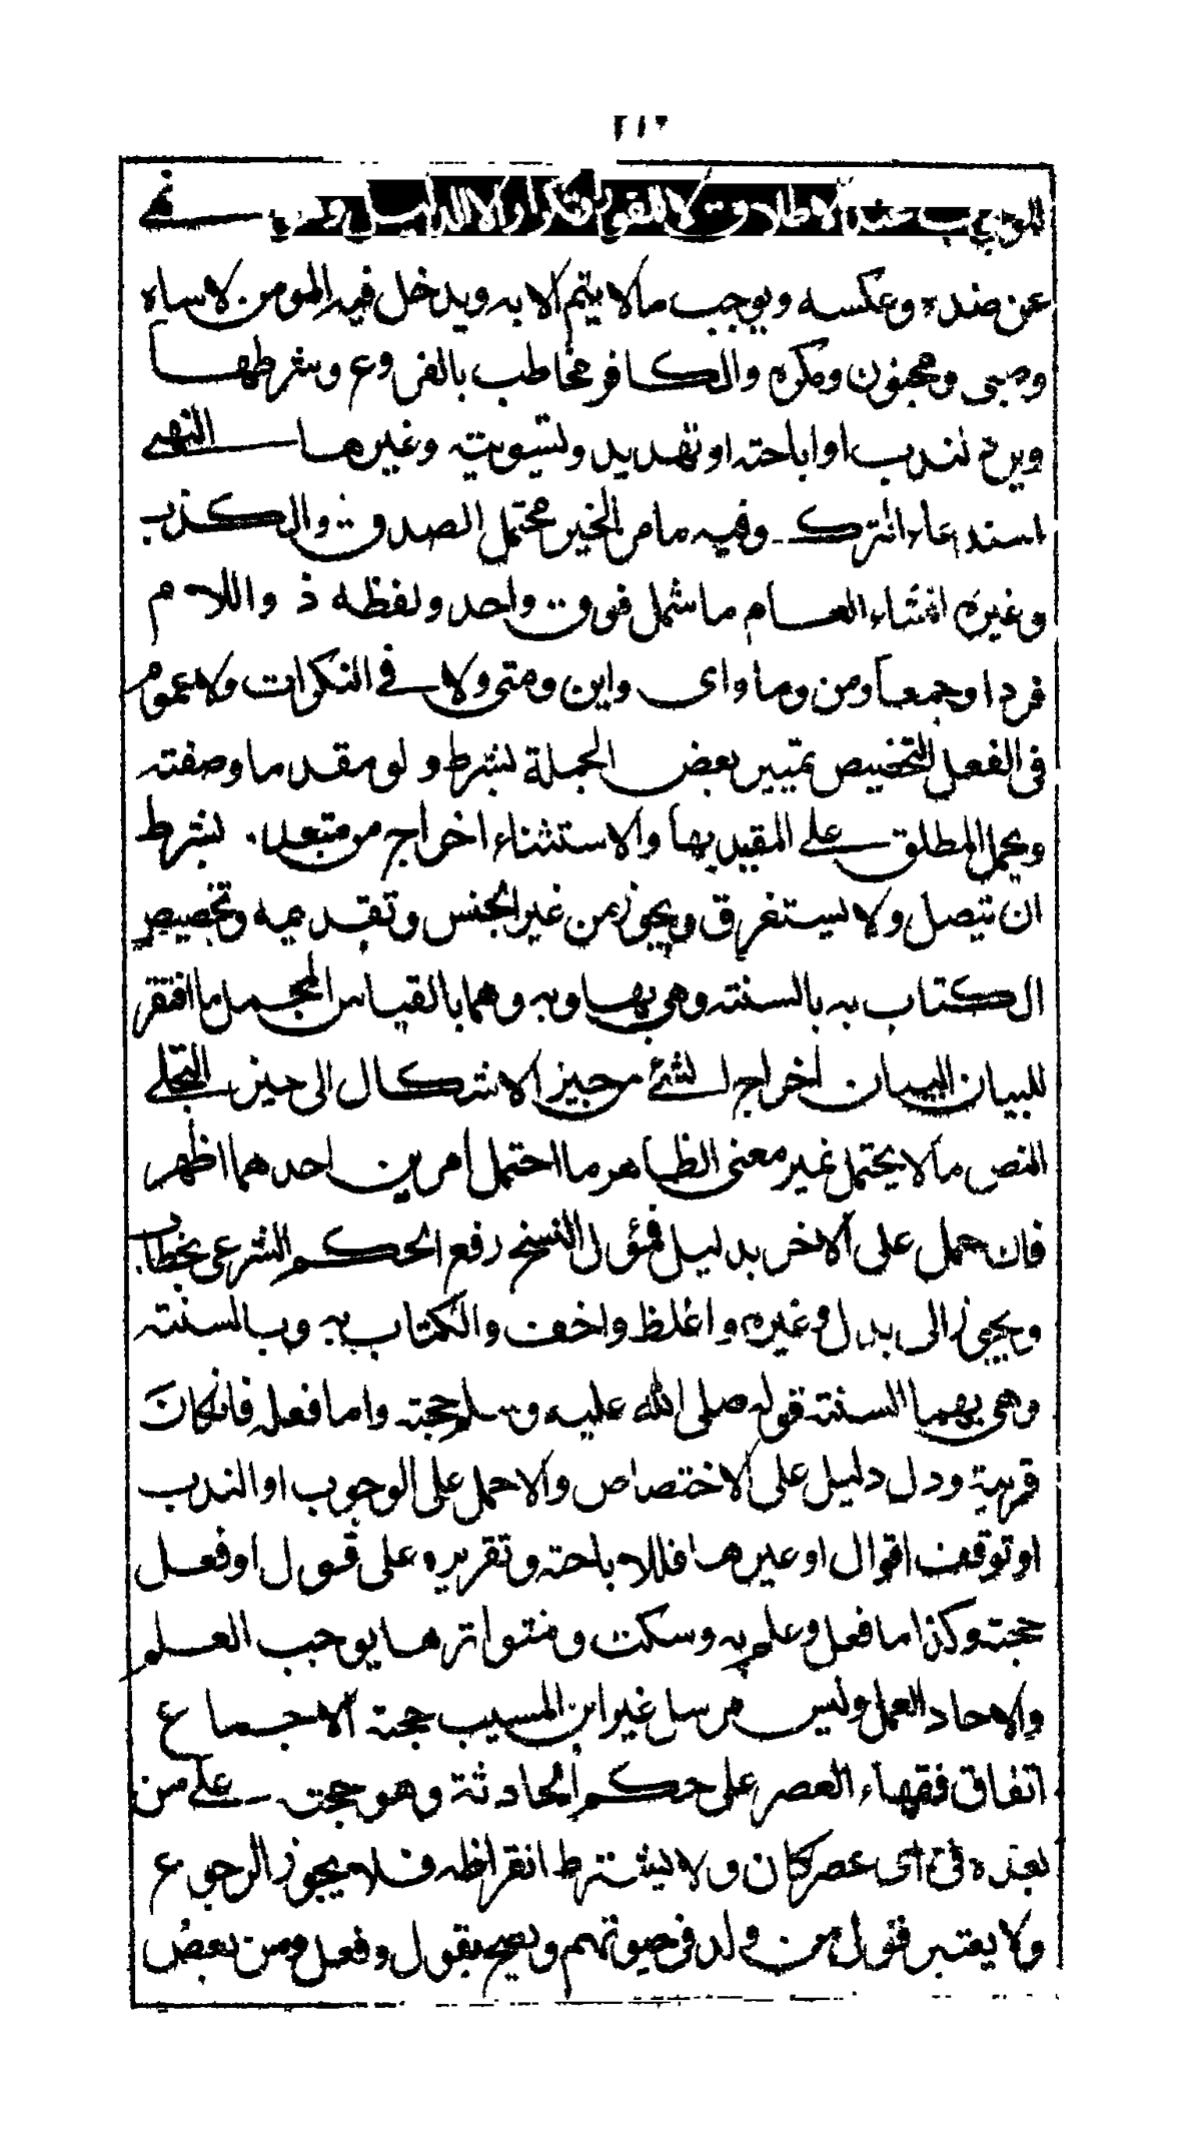 ٢١٢
للوجوب عند الاطلاق لا للفور والتكرار الا لدليل وهو نهى
عن ضده وعكسه ويوجب ما لا يتم الا به ويدخل فيه المومن لا ساه
وصبى ومجنون ومكره والكافر مخاطب بالفروع وشرطها
ويرد لندب او اباحته او تهديد وتسويته وغيرها النهى
استدعاء الترك وفيه ما مر الخبر محتمل الصدق والكذب
وغيره انشاء العام ما شمل فوق واحد ولفظه ذو اللام
فردا وجمعا ومن وما واى واين ومتى ولا فى النكرات ولا عموم
فى الفعل التخصيص تمييز بعض الجملة بشرط ولو مقدما وصفته
ويحمل المطلق على المقيد بها والاستثناء اخراج من متعدد بشرط
ان يتصل ولا يستغرق ويجوز من غير الجنس وتقديمه وتخصيص
الكتاب به بالسنته وهى بها وبه وهما بالقياس المجمل ما افتقر
للبيان البيان اخراج الشئ من حيز الاشكال الى حيز التجلى
النص ما لا يحتمل غير معنى الظاهر ما احتمل امرين احدهما اظهر
فان حمل على الاخر بدليل فمؤول النسخ رفع الحكم الشرعى بخطاب
ويجوز الى بدل وغيره واغلظ واخف والكتاب به وبالسنته
وهى بهما السنته قوله صلى الله عليه وسلم حجته واما فعله فان كان
قربة ودل دليل على الاختصاص والا حمل على الوجوب او الندب
او توقف اقوال او غيرها فللاباحته وتقريره على قول او فعل
حجته وكذا ما فعل وعلم به وسكت ومتواترها يوجب العلم
والاحاد العمل وليس مرسل غير ابن المسيب حجته الاجماع
اتفاق فقهاء العصر على حكم الحادثة وهو حجته على من
بعده فى اى عصر كان ولا يشترط انقراظه فلا يجوز الرجوع
ولا يعتبر قول من ولد فى حيوتهم ويصح بقول وفعل ومن بعض